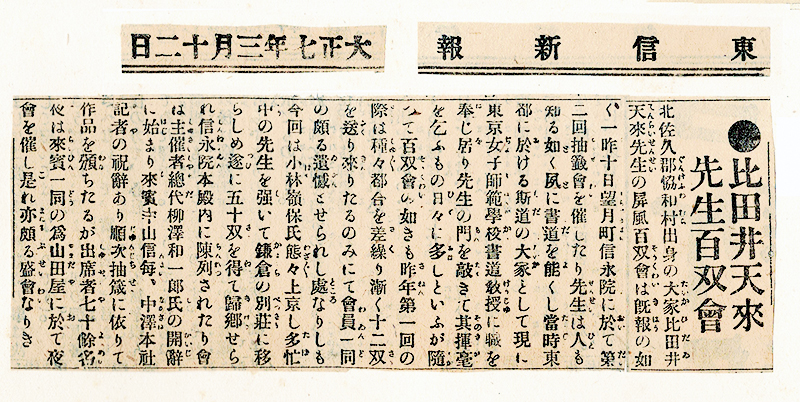 東信新報
大正七年三月十二日
●比田井天來
先生百双會
北佐久郡協和村出身の大家比田井
天來先生の屏風百双會は既報の如
く一昨十日望月町信永院に於て第
二回抽籤會を催したり先生は人も
知る如く夙に書道を能くし當時東
都に於ける斯道の大家として現に
東京女子師範學校書道敎授に職を
奉じ居り先生の門を敲きて其揮毫
を乞ふもの日々に多しといふが隨
つて百双會の如きも昨年第一回の
際は種々都合を差繰り漸く十二双
を送り來りたるのみにて會員一同
の頗る遺憾とせられし處なりしも
今回は小林嶺保氏態々上京し多忙
中の先生を强いて鎌倉の別莊に移
らしめ遂に五十双を得て歸鄕せら
れ信永院本殿內に陳列されたり會
は主催者總代柳澤和一郞氏の開辭
に始まり來賓中山信每、中澤本社
記者の祝辭あり順次抽籤に依りて
作品を頒ちたるが出席者七十餘名
夜は來賓一同の爲山田屋に於て夜
會を催し是れ亦頗る盛會なりき